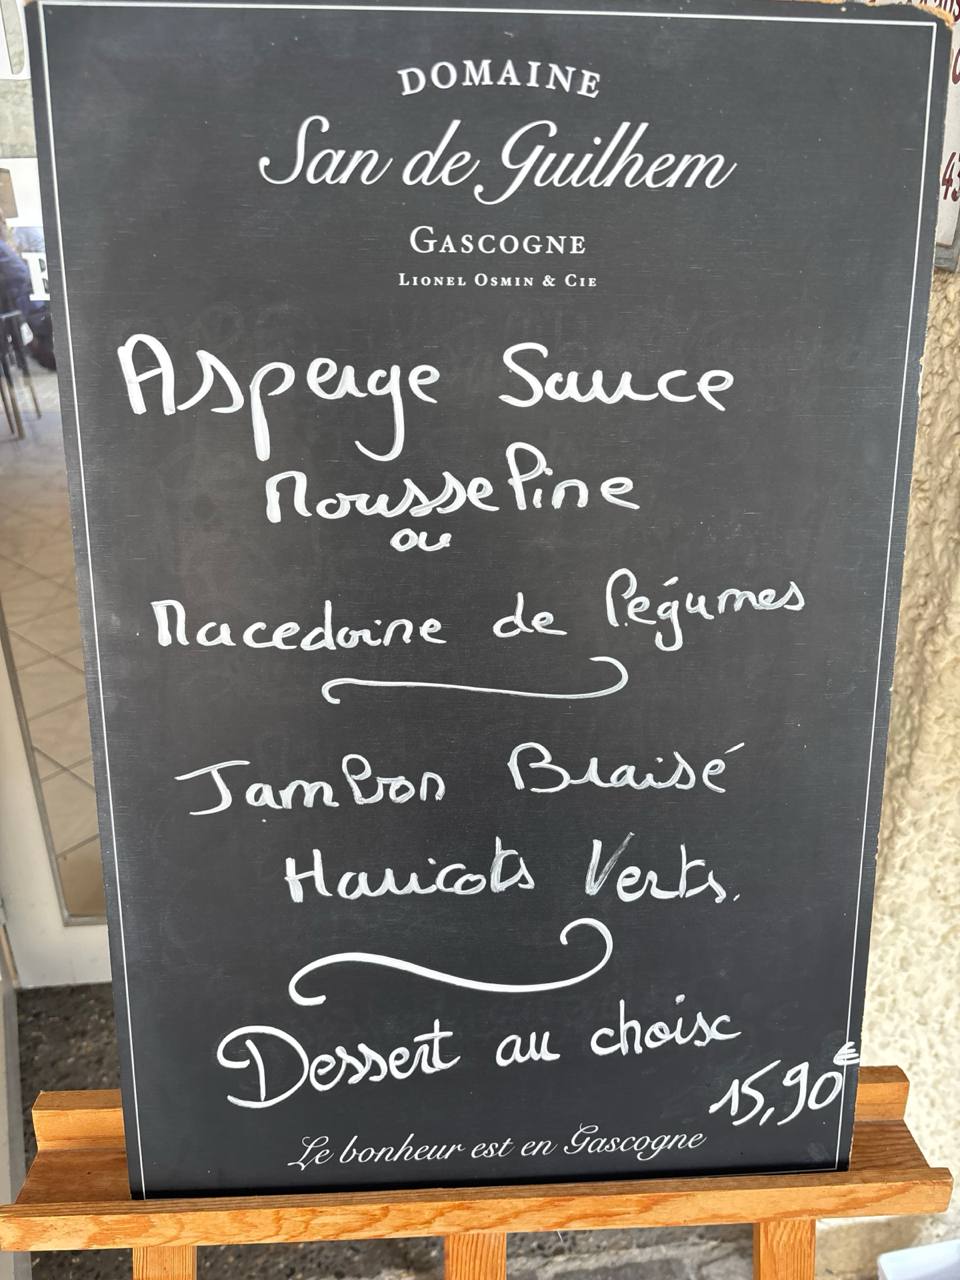 DOMAINE
San de Guilhem
GASCOGNE
LIONEL OSMIN & CIE
Asperge Sauce
Mousseline
ou
Macedoine de légumes
Jambon Braisé
Haricots Verts.
Dessert au choix
15,90€
Le bonheur est en Gascogne
43